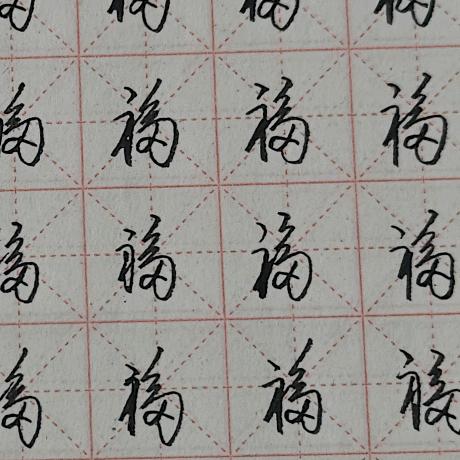 福 福 福 福
福 福 福 福
福 福 福 福